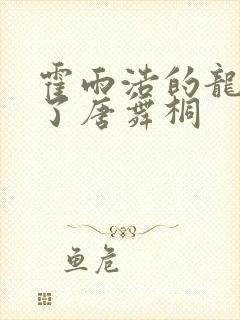 霍雨浩的龍
了唐舞桐
鱼危